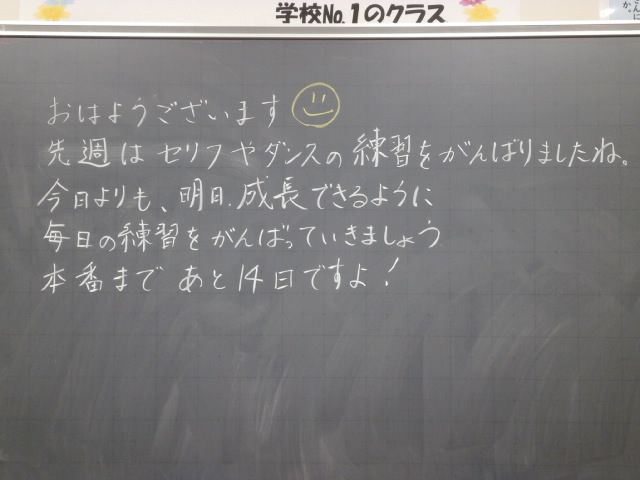 学校No.1のクラス
おはようございます
先週はセリフやダンスの練習をがんばりましたね。
今日よりも、明日、成長できるように
毎日の練習をがんばっていきましょう
本番まで あと14日ですよ!